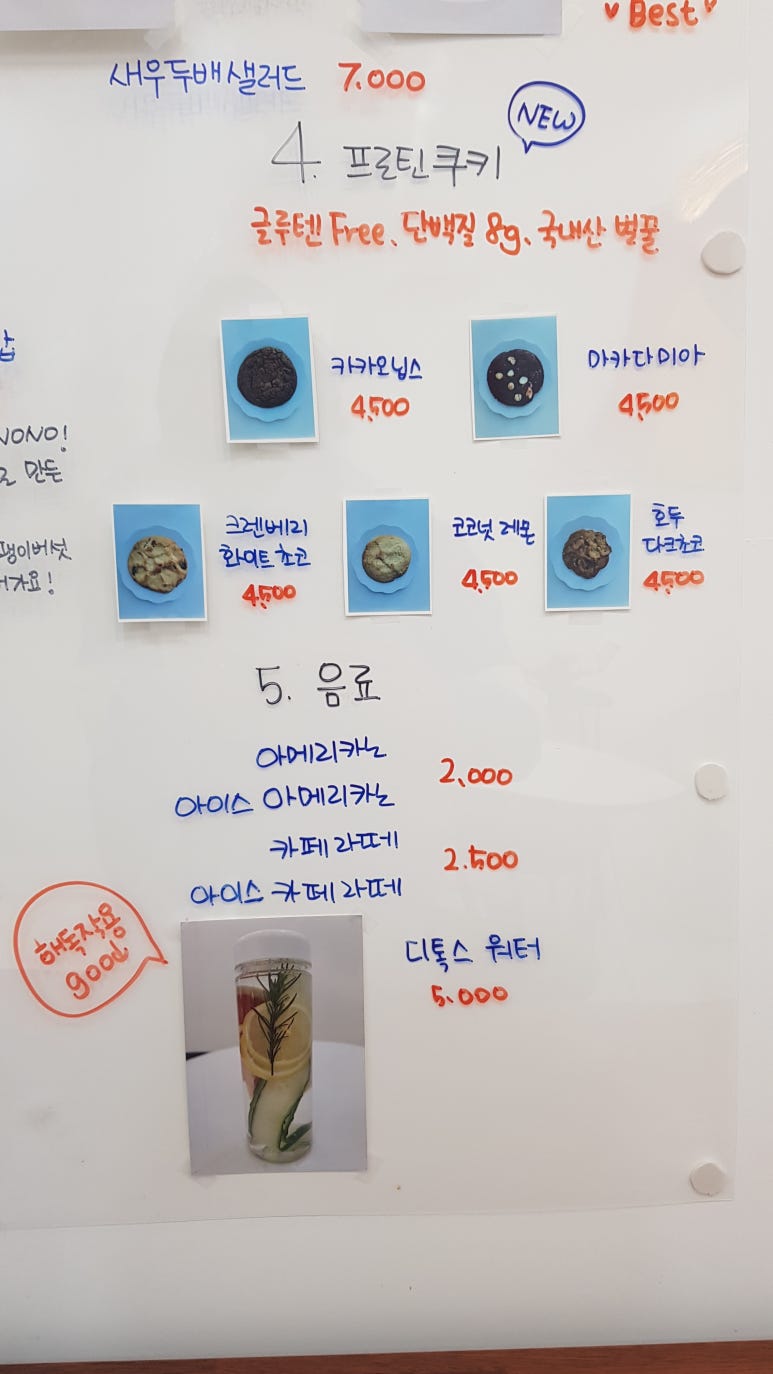 ♥Best♥
새우두배샐러드 7.000
NEW
4. 프로틴쿠키
글루텐 Free、단백질 8g、국내산 벌꿀
카카오닙스
4,500
마카다미아
4,500
NONO!
만든
팽이버섯
가요!
크렌베리
화이트초코
4,500
코코넛 레몬
4,500
호두
다크초코
4,500
5. 음료
아메리카노
아이스 아메리카노
2,000
카페라떼
아이스 카페라떼
2.500
해독작용
good
디톡스 워터
5.000